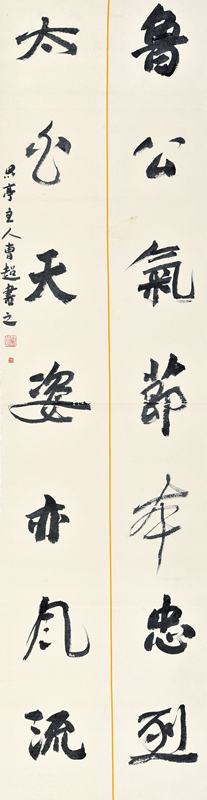 魯公氣節本忠烈
太白天姿亦風流
思亭主人曹超書之